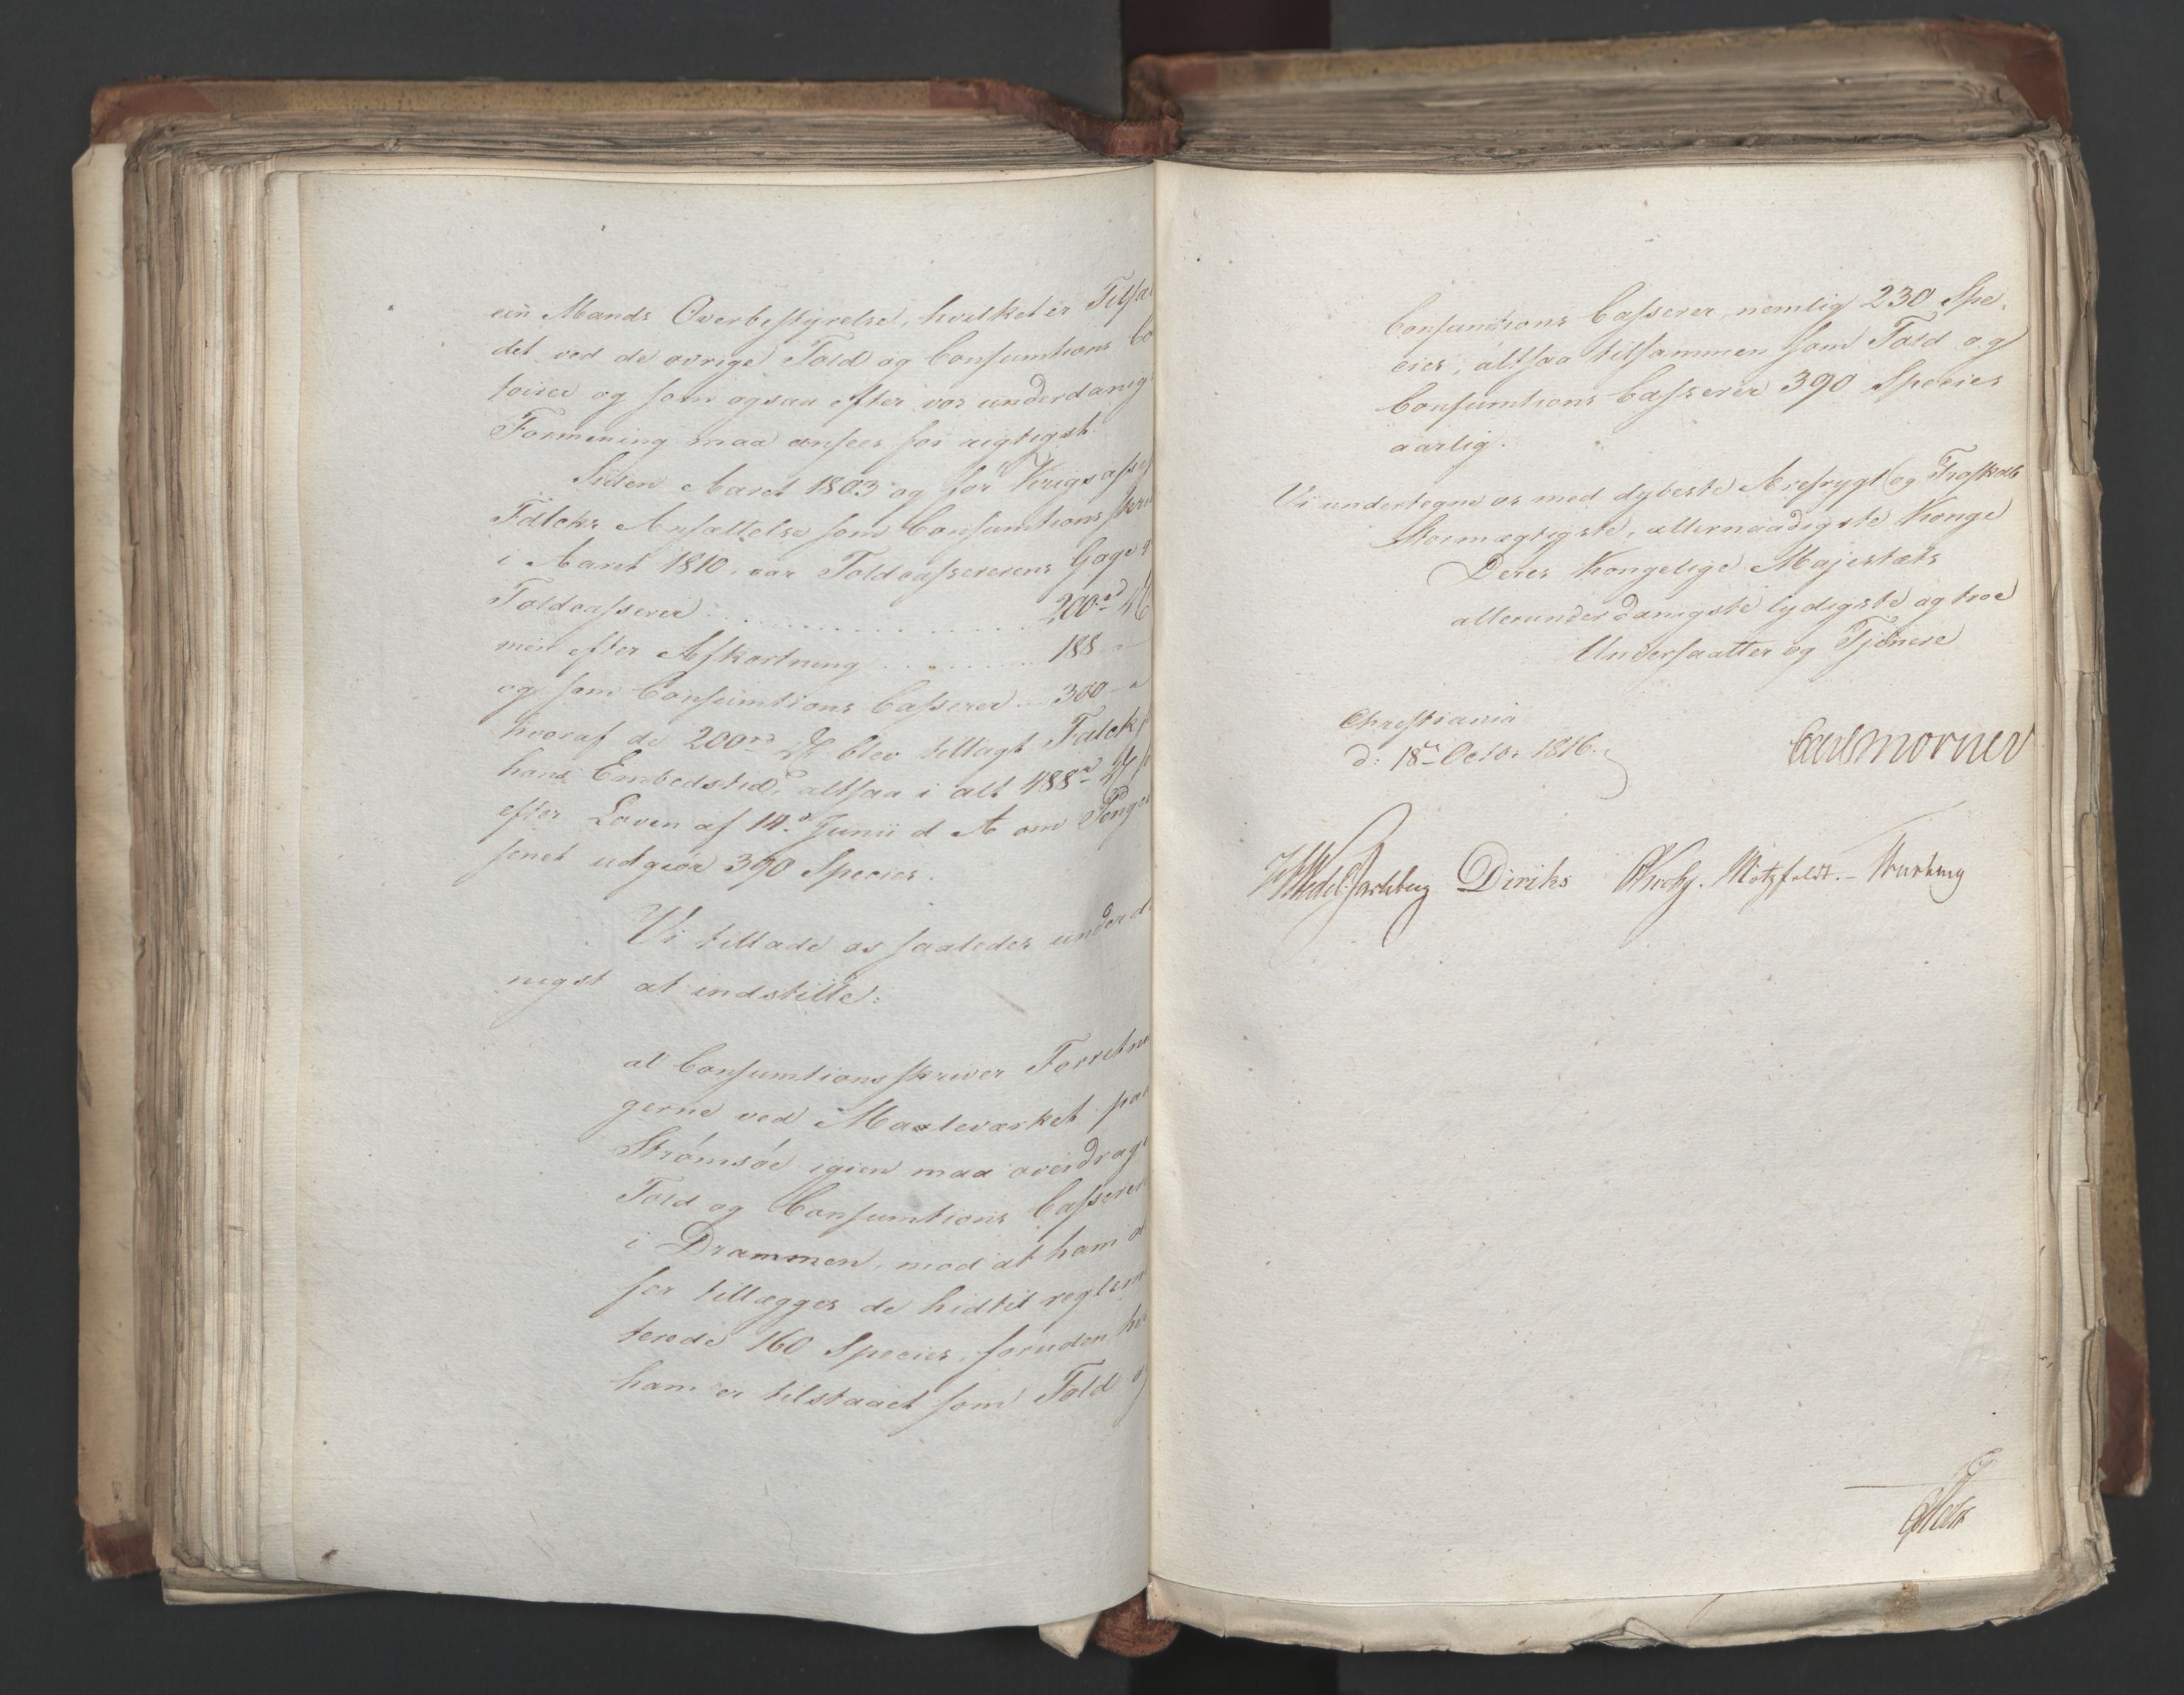 een Mands Overbestyrelse, hvilket er Tilfæl
det ved de øvrige Told og Consumtions Co
toirer og som ogsaa efter vor underdanig
Formening maa ansees for rigtigst.
Siden Aaret 1803 og før Krigsassess
Falcks Ansættelse som Consumtionsskri
i Aaret 1810, var Toldcassererens Gage
Toldcasserer . . . . . 200 rd
men efter Afkortning . . . . . 188 "
og som Consumtions Casserer . . . 300 "
hvoraf de 200 rd blev tillagt Falck
hans Embedstid, altsaa i alt 488 rd
efter Loven af 14d Junii d A om Penge
senet udgiør 390 Species.
Vi tillade os saaledes underda
nigst at indstille:
at Consumtionsskriver Forretnin
gerne ved Maaleværket paa
Strømsøe igien maa overdrages
Told og Consumtions Casserer
i Drammen, mod at ham
for tillægges de hidtil reglemen
terede 160 Species, foruden hv
ham er tilstaaet som Told og
Consumtions Casserer, nemlig 230 Spe
cies, altsaa tilsammen som Told og
Consumtions Casserer 390 Species
aarlig.
Vi undertegne os med dybeste Ærefrygt og Troskab
Stormægtigste, allernaadigste Konge
Deres Kongelige Majestæts
allerunderdanigste lydigste og troe
Undersaatter og Tjenere
Christiania
d: 18de Octbr 1816.
Carl Mörner
HWedel Jarlsberg Diriks Krohg. Motzfeldt.